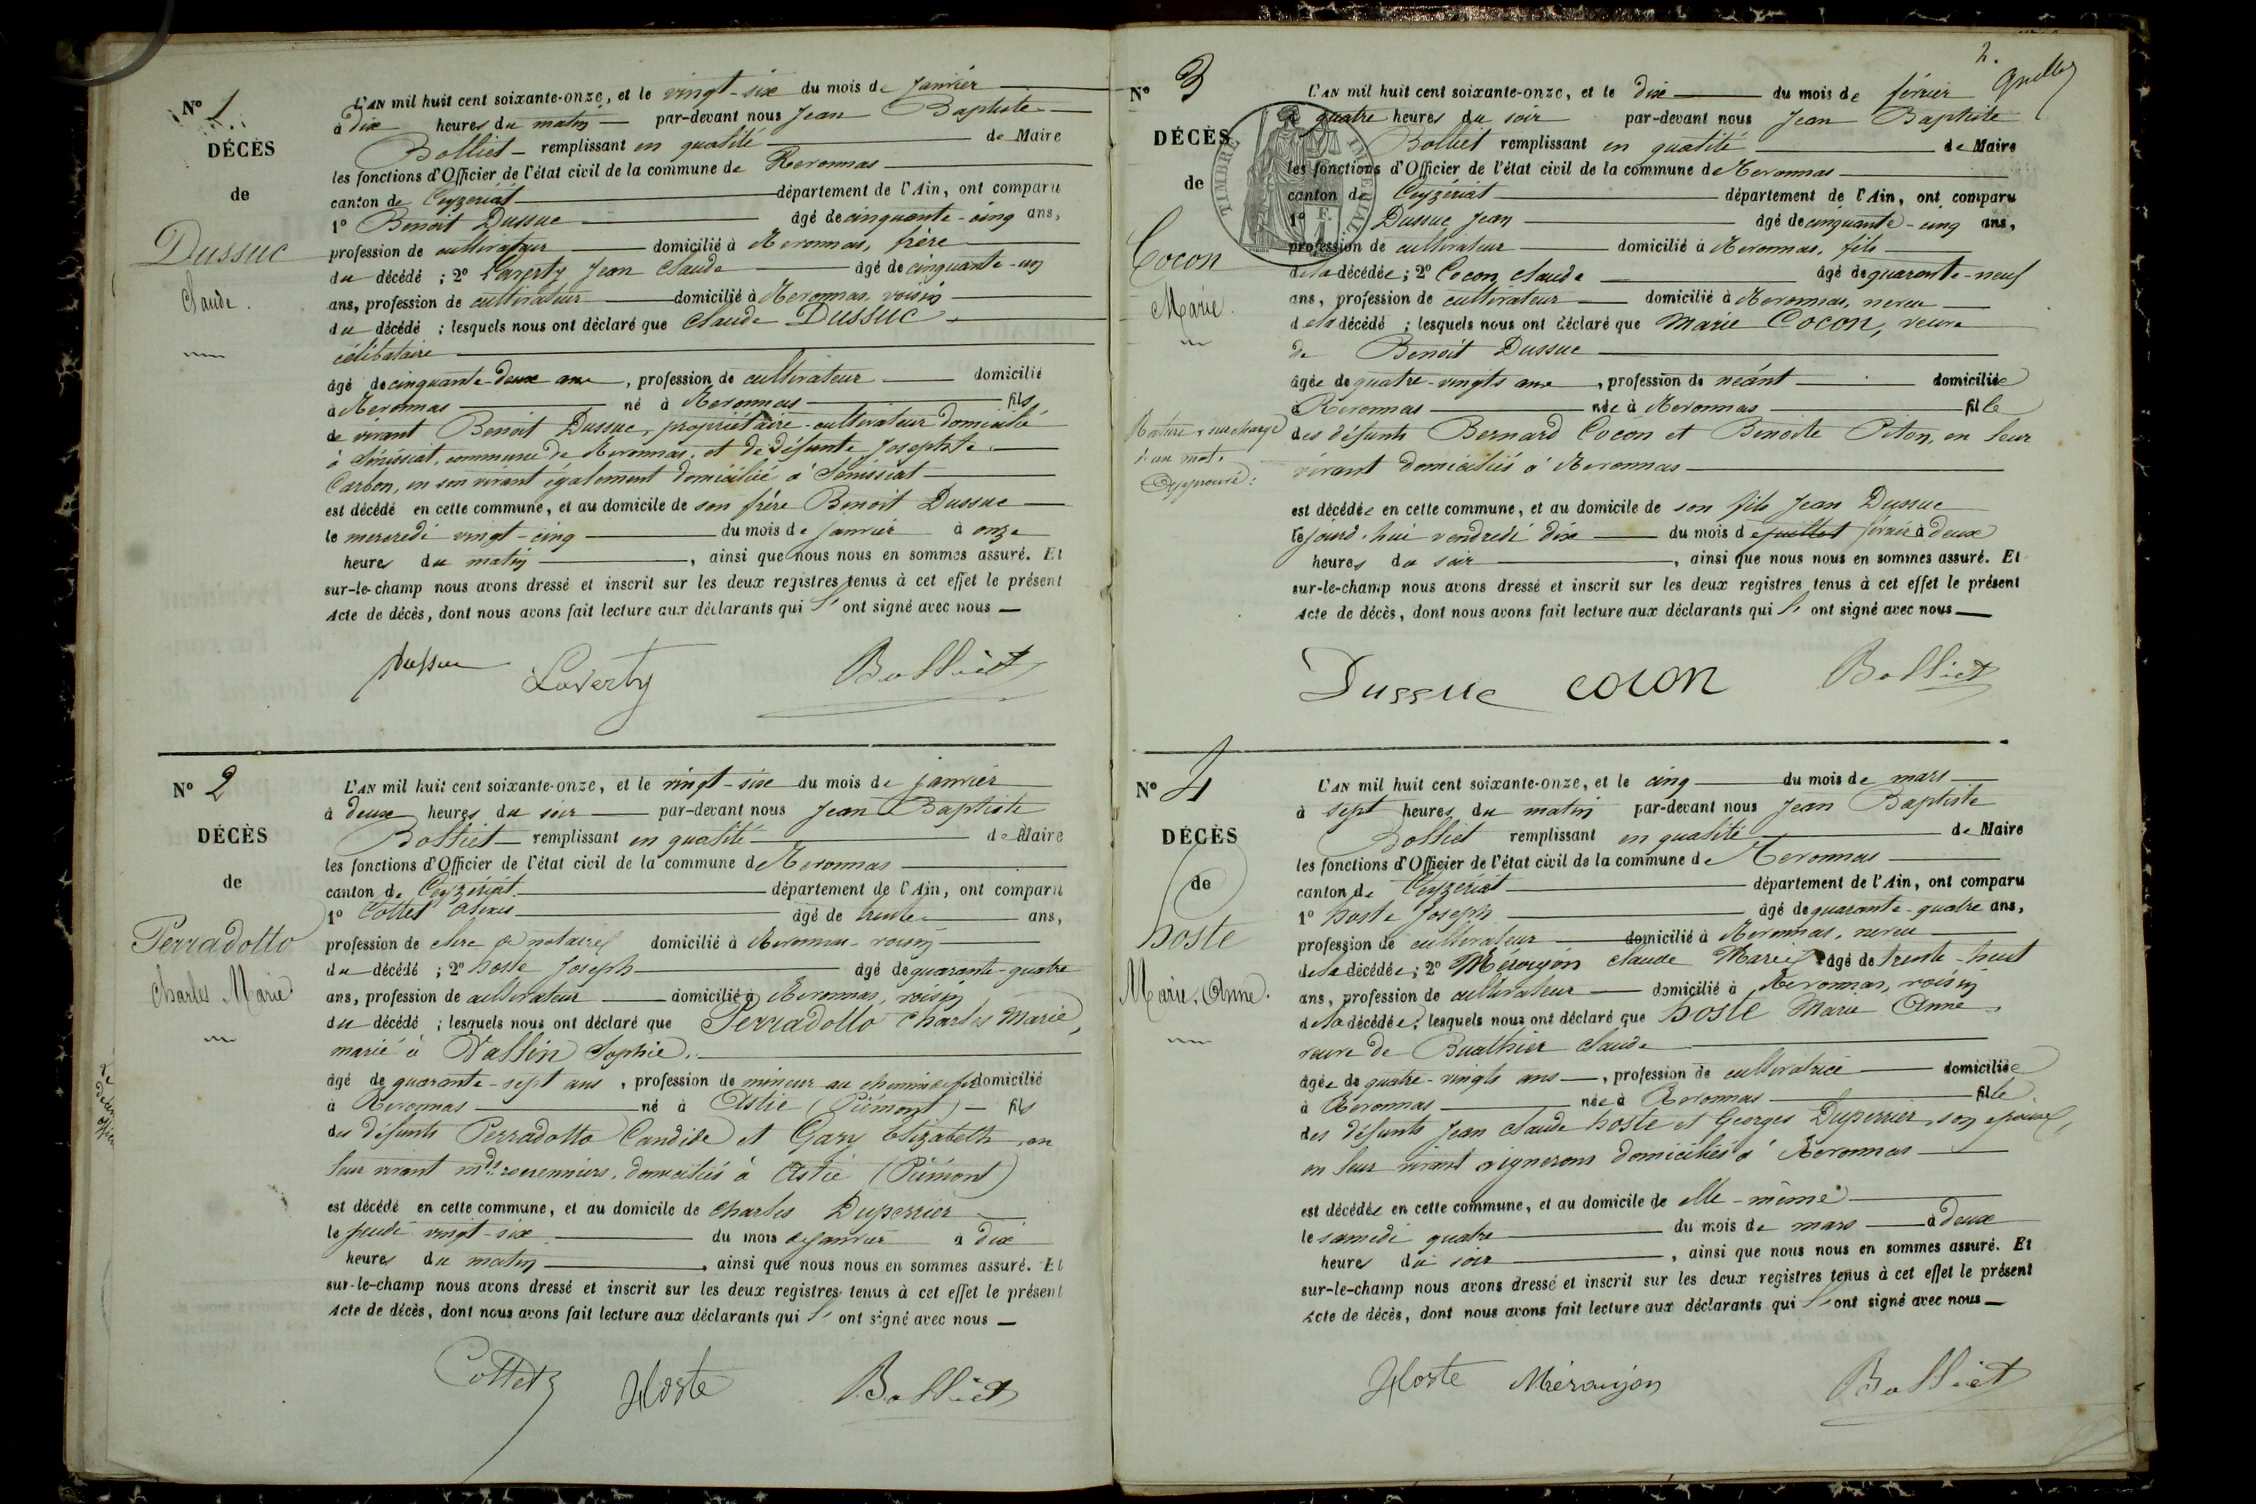 N° 1
DÉCÈS
de
Dussuc
Claude.
L'AN mil huit cent soixante-onze, et le vingt-six du mois de Janvier
à dix heures du matin par-devant nous Jean Baptiste
Bolliet remplissant en qualité de Maire
les fonctions d'Officier de l'état civil de la commune de Revonnas
canton de Ceyzériat département de l'Ain, ont comparu
1° Benoit Dussuc âgé de cinquante-cinq ans,
profession de cultivateur domicilié à Revonnas, frère
du décédé ; 2° Laverty Jean Claude âgé de cinquante-un
ans, profession de cultivateur domicilié à Revonnas, voisin
du décédé ; lesquels nous ont déclaré que Claude Dussuc,
célibataire
âgé de cinquante-deux ans, profession de cultivateur domicilié
à Revonnas né à Revonnas fils
de vivant Benoit Dussuc, propriétaire-cultivateur domicilié
à Sénissiat, commune de Revonnas, et de défunte Josephte
Carbon, en son vivant également domiciliée à Sénissiat
est décédé en cette commune, et au domicile de son frère Benoit Dussuc
le mercredi vingt-cinq du mois de janvier à onze
heures du matin, ainsi que nous nous en sommes assuré. Et
sur-le-champ nous avons dressé et inscrit sur les deux registres tenus à cet effet le présent
Acte de décès, dont nous avons fait lecture aux déclarants qui l' ont signé avec nous
Dussuc Laverty Bolliet
N° 2
DÉCÈS
de
Perradotto
Charles Marie
L'AN mil huit cent soixante-onze, et le vingt-six du mois de janvier
à deux heures du soir par-devant nous Jean Baptiste
Bolliet remplissant en qualité de Maire
les fonctions d'Officier de l'état civil de la commune de Revonnas
canton de Ceyzériat département de l'Ain, ont comparu
1° Cottet Alexis âgé de trente ans,
profession de clerc de notaire domicilié à Revonnas, voisin
du décédé ; 2° hoste Joseph âgé de quarante-quatre
ans, profession de cultivateur domicilié à Revonnas, voisin
du décédé ; lesquels nous ont déclaré que Perradotto Charles Marie,
marié à Vallin Sophie,
âgé de quarante-sept ans, profession de mineur au chemin de fer domicilié
à Revonnas né à Astie (Piémont) fils
des défunts Perradotto Candide et Gary Elizabeth, en
leur vivant mds domiciliés à Astie (Piémont)
est décédé en cette commune, et au domicile de Charles Duperrier
le jeudi vingt-six du mois de janvier à dix
heures du matin, ainsi que nous nous en sommes assuré. Et
sur-le-champ nous avons dressé et inscrit sur les deux registres tenus à cet effet le présent
Acte de décès, dont nous avons fait lecture aux déclarants qui l' ont signé avec nous
Cottet Hoste Bolliet
2.
N° 3
DÉCÈS
de
Cocon
Marie.
Rature, surcharge
d'un mot.
Approuvé :
TIMBRE IMPÉRIAL
L'AN mil huit cent soixante-onze, et le dix du mois de février
à quatre heures du soir par-devant nous Jean Baptiste
Bolliet remplissant en qualité de Maire
les fonctions d'Officier de l'état civil de la commune de Revonnas
canton de Ceyzériat département de l'Ain, ont comparu
1° Dussuc Jean âgé de cinquante-cinq ans,
profession de cultivateur domicilié à Revonnas, fils
de la décédée ; 2° Cocon Claude âgé de quarante-neuf
ans, profession de cultivateur domicilié à Revonnas, neveu
de la décédé ; lesquels nous ont déclaré que Marie Cocon, veuve
de Benoit Dussuc
âgée de quatre-vingts ans, profession de néant domiciliée
à Revonnas née à Revonnas fille
des défunts Bernard Cocon et Benoite Piton, en leur
vivant domiciliés à Revonnas
est décédée en cette commune, et au domicile de son fils Jean Dussuc
le jourd'hui vendredi dix du mois de juillet février à deux
heures du soir, ainsi que nous nous en sommes assuré. Et
sur-le-champ nous avons dressé et inscrit sur les deux registres tenus à cet effet le présent
Acte de décès, dont nous avons fait lecture aux déclarants qui l' ont signé avec nous
Dussuc cocon Bolliet
N° 4
DÉCÈS
de
hoste
Marie, Anne.
L'AN mil huit cent soixante-onze, et le cinq du mois de mars
à sept heures du matin par-devant nous Jean Baptiste
Bolliet remplissant en qualité de Maire
les fonctions d'Officier de l'état civil de la commune de Revonnas
canton de Ceyzériat département de l'Ain, ont comparu
1° hoste Joseph âgé de quarante-quatre ans,
profession de cultivateur domicilié à Revonnas, neveu
de la décédée ; 2° Méroujon Claude Marie âgé de trente-huit
ans, profession de cultivateur domicilié à Revonnas, voisin
de la décédée ; lesquels nous ont déclaré que hoste Marie Anne,
veuve de Buathier Claude
âgée de quatre-vingts ans, profession de cultivatrice domiciliée
à Revonnas née à Revonnas fille
des défunts Jean Claude hoste et Georges Duperrier, son épouse,
en leur vivant vignerons domiciliés à Revonnas
est décédée en cette commune, et au domicile de elle-même
le samedi quatre du mois de mars à deux
heures du soir, ainsi que nous nous en sommes assuré. Et
sur-le-champ nous avons dressé et inscrit sur les deux registres tenus à cet effet le présent
Acte de décès, dont nous avons fait lecture aux déclarants qui l' ont signé avec nous
Hoste Méroujon Bolliet